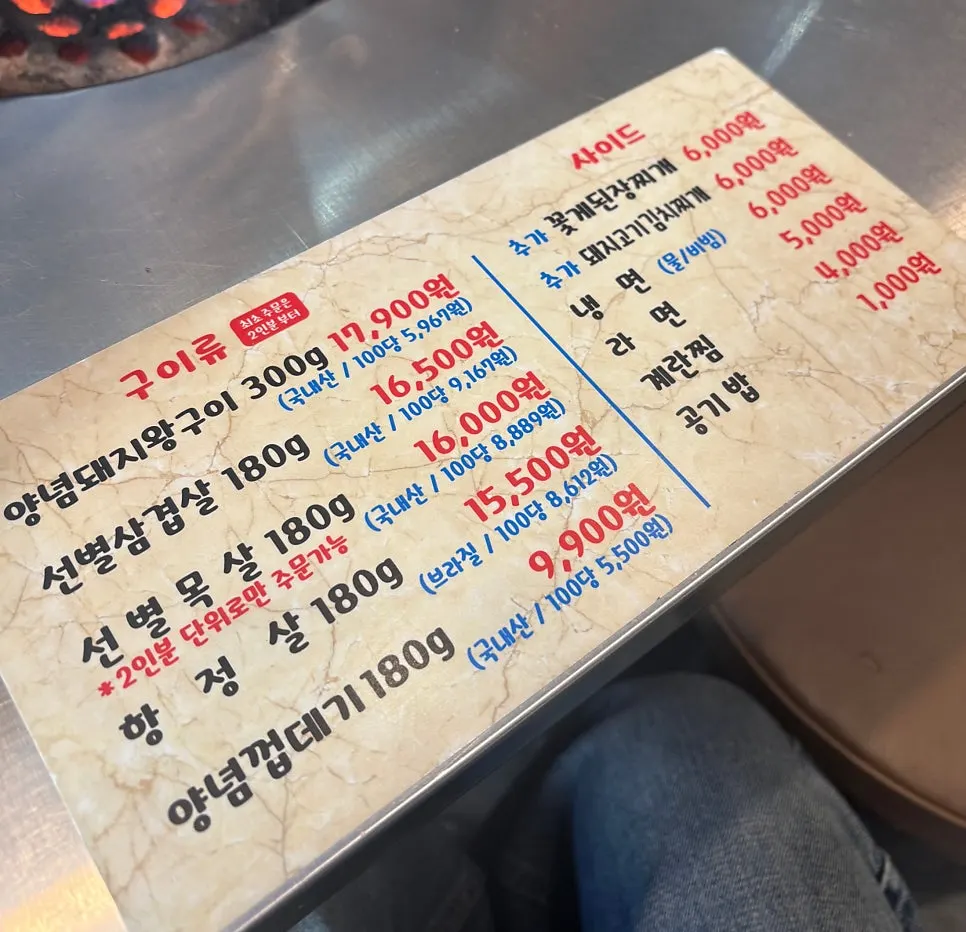 구이류 최초 주문은
2인분 부터
양념돼지왕구이 300g 17,900원
(국내산 / 100당 5,967원)
선별삼겹살 180g 16,500원
(국내산 / 100당 9,167원)
선별목살 180g 16,000원
(국내산 / 100당 8,889원)
*2인분 단위로만 주문가능
항정살 180g 15,500원
(브라질 / 100당 8,612원)
양념껍데기 180g 9,900원
(국내산 / 100당 5,500원)
사이드
추가 꽃게된장찌개 6,000원
추가 돼지고기김치찌개 6,000원
냉면 (물/비빔) 6,000원
라면 5,000원
계란찜 4,000원
공기밥 1,000원